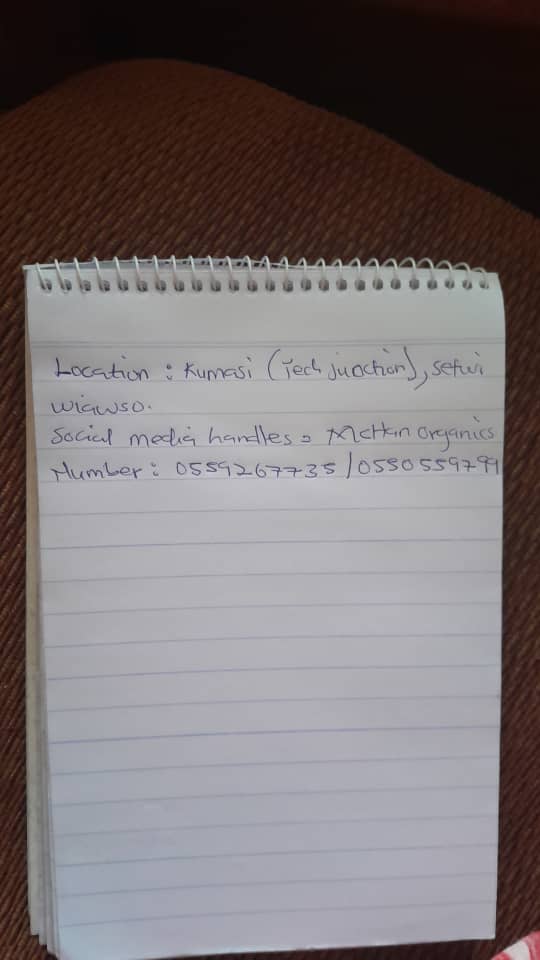 Location : Kumasi (Tech junction), sefwi
wiawso.
Social media handles = McHan organics
Number : 0559267735 / 0550559799